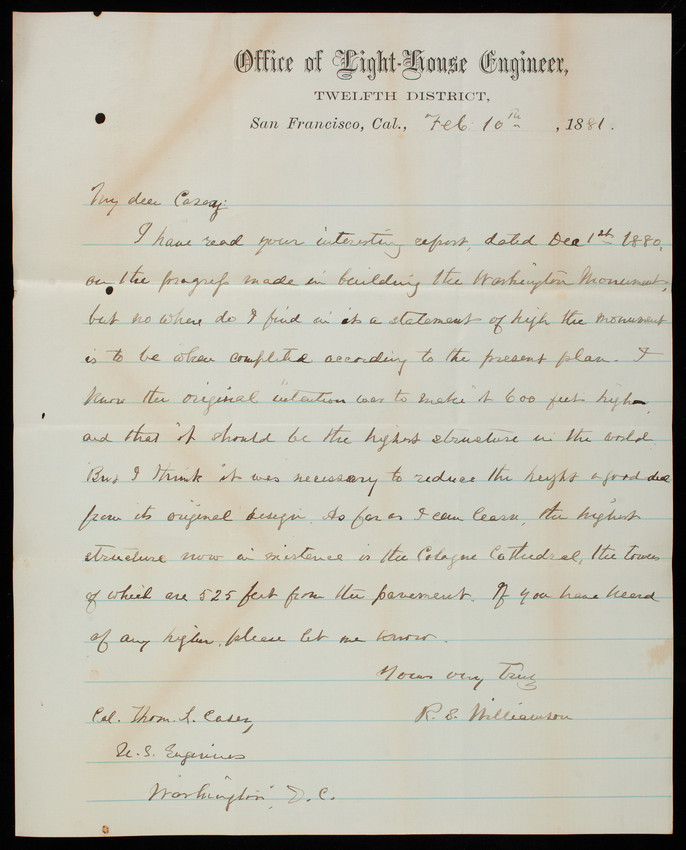 Office of Light-House Engineer,
TWELFTH DISTRICT,
San Francisco, Cal., Feb 10th, 1881.
My dear Casey:
I have read your interesting report, dated Dec 1st 1880,
on the progress made in building the Washington Monument,
but no where do I find in it a statement of high the monument
is to be when completed according to the present plan. I
know the original intention was to make it 600 feet high,
and that it should be the highest structure in the world.
But I think it was necessary to reduce the height a good deal
from its original design. As far as I can learn, the highest
structure now in existence is the Cologne Cathedral, the towers
of which are 525 feet from the pavement. If you have heard
of any higher, please let me know.
Yours very truly
R. S. Williamson
Col. Thom. L. Casey,
U. S. Engineers
Washington, D. C.